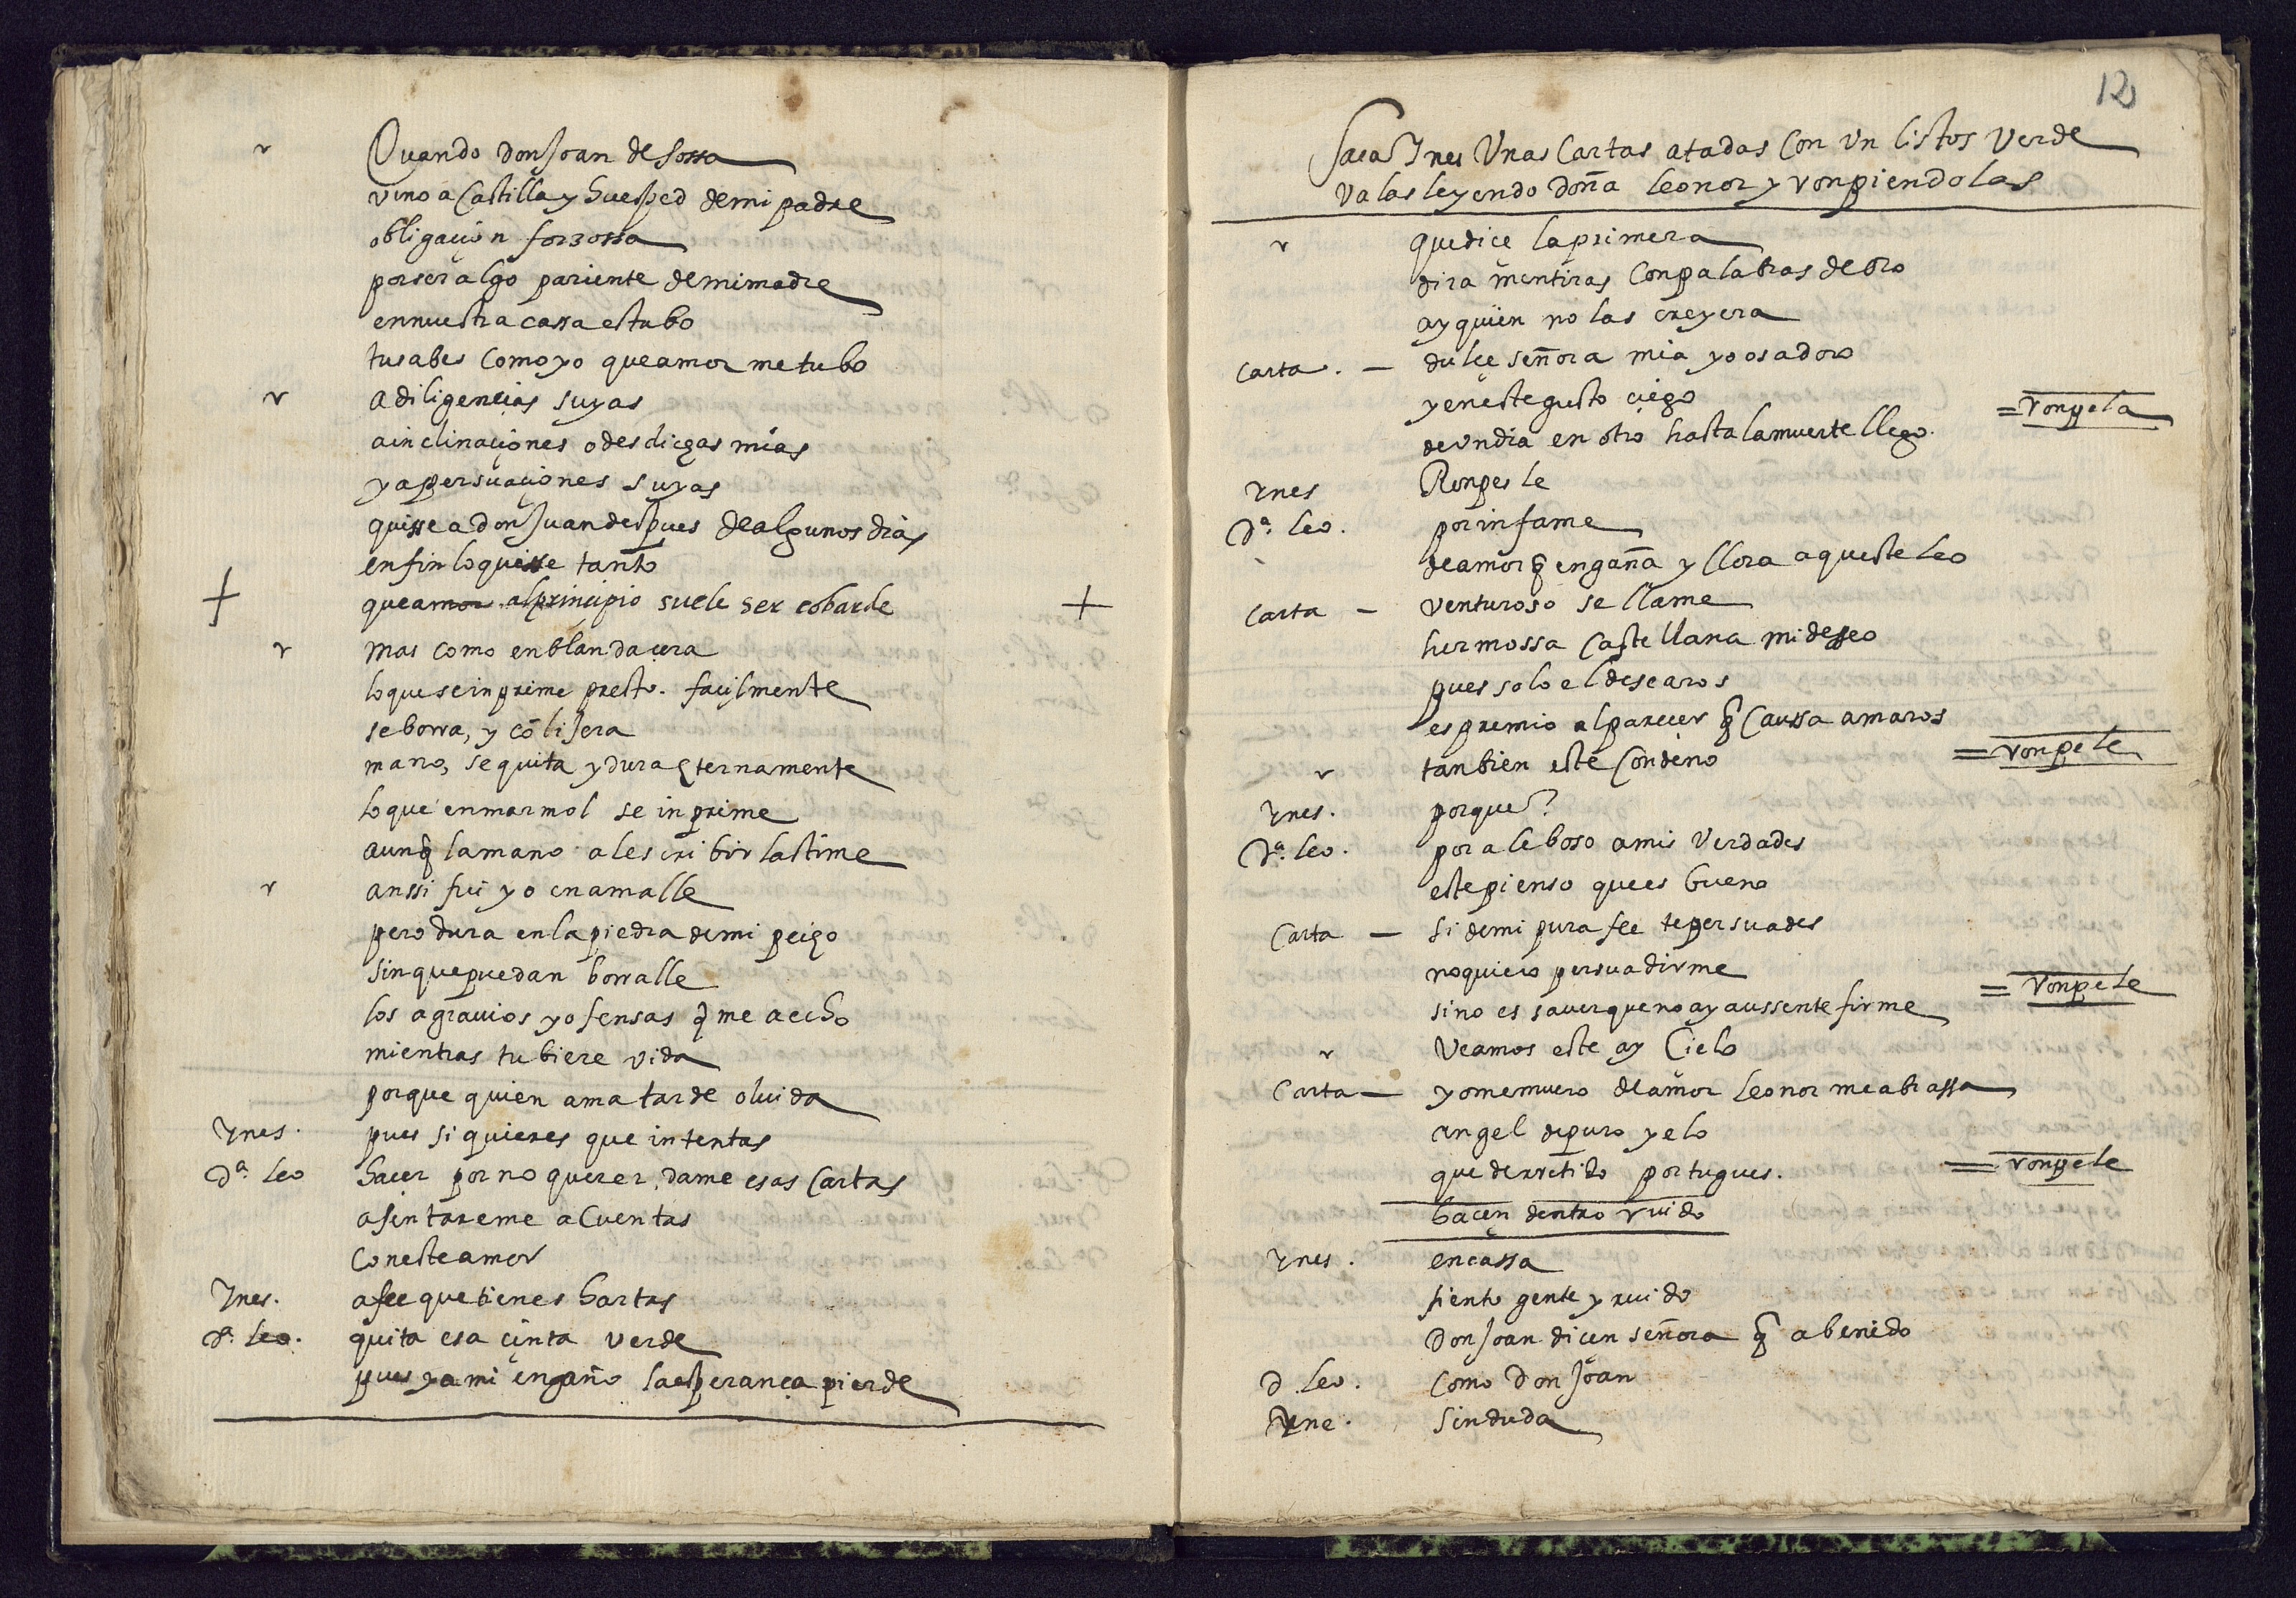 Quando don Joan de sossa
vino a Castilla y huesped de mi padre
obligaçion forzossa
por ser algo pariente de mi madre
en nuestra cassa estubo
tu sabes como yo que amor me tubo
a diligençias suyas
a inclinaçiones o desdichas mias
y a persuaçiones suyas
quisse a don Juan despues de algunos dias
en fin lo quisse tanto
+ que amor al prinçipio suele ser cobarde +
mas como en blanda çera
lo que se inprime presto. facilmente
se borra, y cō lijera
mano, se quita y dura eternamente
lo que en marmol se inprime
aunq̃ la mano al escribir lastime
anssi fui yo en amalle
pero dura en la piedra de mi pecho
sin que puedan borralle
los agrauios y ofensas q̃ me a echo
mientras tubiere vida
porque quien ama tarde oluida
Ynes. pues si quieres que intentas
Dª. Leo hacer por no querer, dame esas Cartas
asentareme a Cuentas
con este amor
Ynes. a fee que tienes hartas
Dª. Leo. quita esa çinta verde
pues ya mi engaño la esperança pierde
12
Saca Ynes Unas Cartas atadas Con Un liston Verde
Va las leyendo doña Leonor y ronpiendolas
que dice la primera
dira mentiras Con palabras de oro
ay quien no las creyera
Carta. — dulçe señora mia yo os adoro
y en este gusto ciego
= ronpela
de Un dia en otro hasta la muerte llego.
Ynes Ronpesle
Dª. Leo. por infame
de amor q̃ engaña y llora aqueste leo
Carta — venturoso se llame
hermossa Castellana mi desseo
pues solo el desearos
es premio al parecer q̃ Caussa amaros
tanbien este Condeno = ronpele
Ynes. porque?
Dª. Leo. por aleboso a mis Verdades
este pienso que es bueno
Carta — si de mi pura fee te persuades
no quiero persuadirme
= Ronpele
sino es sauer que no ay aussente firme
Veamos este ay Cielo
Carta — yo me muero de amor Leonor me abrassa
angel de puro yelo
que derretido portugues. = ronpele
hacen dentro ruido
Ynes. en cassa
siento gente y ruido
Don Joan dicen señora q̃ a benido
D. Leo. Como Don Joan
Yne. Sin duda